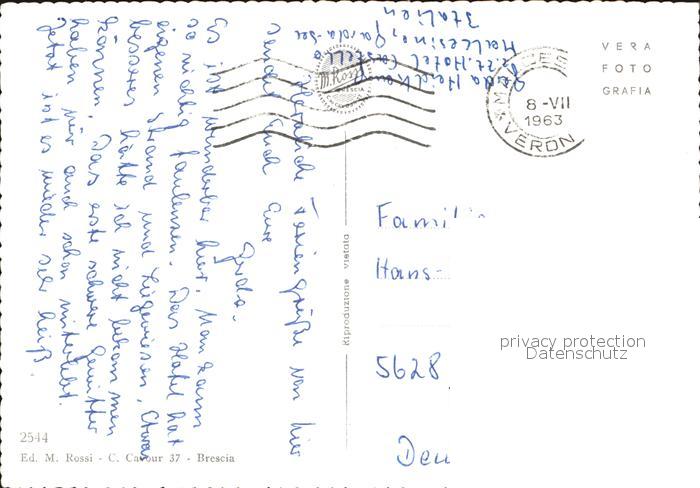 Herzliche Feriengrüße von hier
sendet Euch Eure
Gerda.
Es ist wunderbar hier. Man kann
so richtig faulenzen. Das Hotel hat
eigenen Strand und Liegewiesen, etwas
besseres hätte ich nicht bekommen
können. Das erste schwere Gewitter
haben wir auch schon miterlebt.
Jetzt ist es wieder sehr heiß.
z.Zt. Hotel Castello
Malcesine, Garda-See
Italien
M. Rossi
BRESCIA
8 -VII
1963
VERON
VERA
FOTO
GRAFIA
Riproduzione vietata
Famili
Hans-
5628
Deu
privacy protection
Datenschutz
2544
Ed. M. Rossi - C. Cavour 37 - Brescia